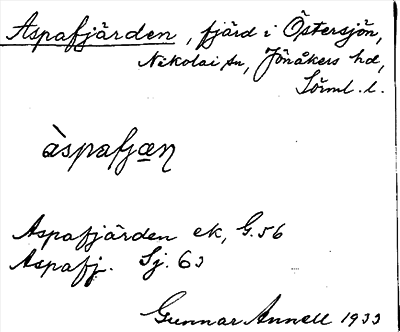 Aspafjärden, fjärd i Östersjön,
Nikolai sn, Jönåkers hd,
Sörml. l.
àspafjæ̲ṇ
Aspafjärden ek, G. 56
Aspafj. Sj. 63
Gunnar Annell 1933